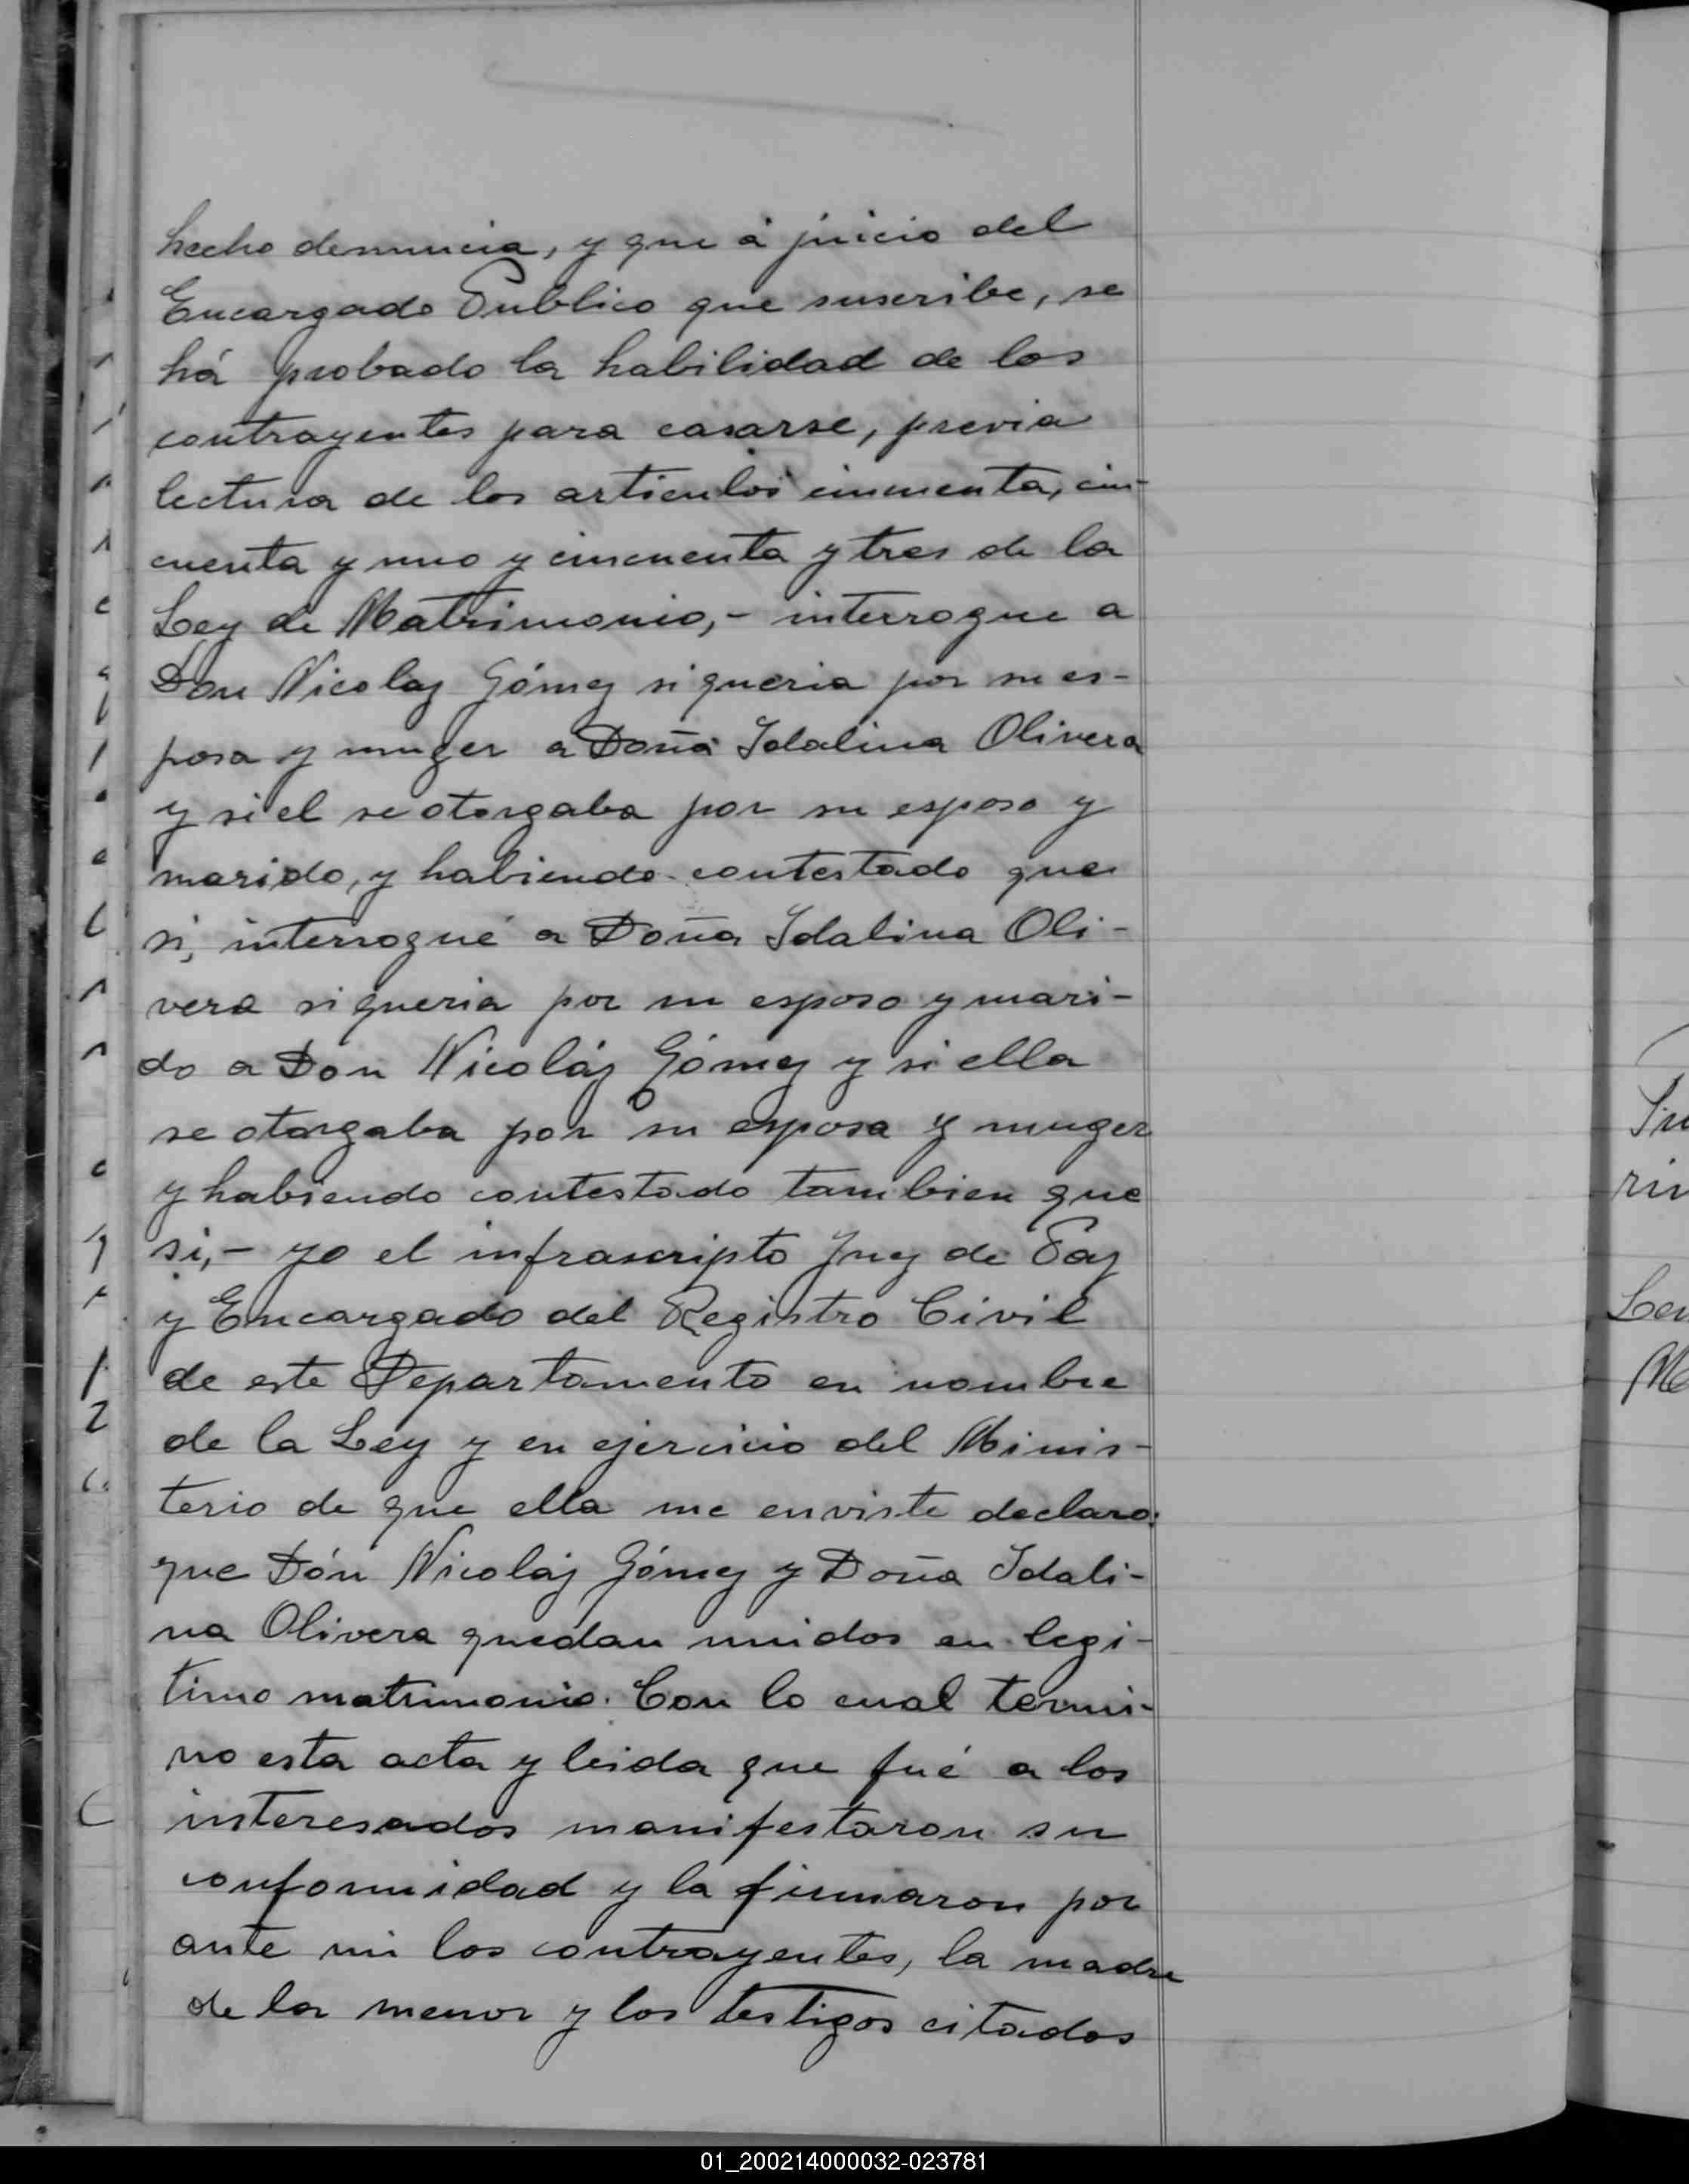 hecho denuncia, y que á juicio del
Encargado Publico que suscribe, se
há probado la habilidad de los
contrayentes para casarse, previa
lectura de los articulos cincuenta, cin-
cuenta y uno y cincuenta y tres de la
Ley de Matrimonio,- interrogue a
Don Nicolaz Gómez si queria por su es-
posa y muger a Doña Idalina Olivera
y si el se otorgaba por su esposo y
marido, y habiendo contestado que
si, interrogué a Doña Idalina Oli-
vera si queria por su esposo y mari-
do a Dón Nicoláz Gómez y si ella
se otorgaba por su esposa y muger
y habiendo contestado tambien que
si,- yo el infrascripto Juez de Paz
y Encargado del Registro Civil
de este Departamento en nombre
de la Ley y en ejercicio del Minis-
terio de que ella me enviste declaro:
que Dón Nicoláz Gómez y Doña Idali-
na Olivera quedan unidos en legi-
timo matrimonio. Con lo cual termi-
no esta acta y leida que fué a los
interesados manifestaron su
conformidad y la firmaron por
ante mi los contrayentes, la madre
de la menor y los testigos citados
01_200214000032-023781